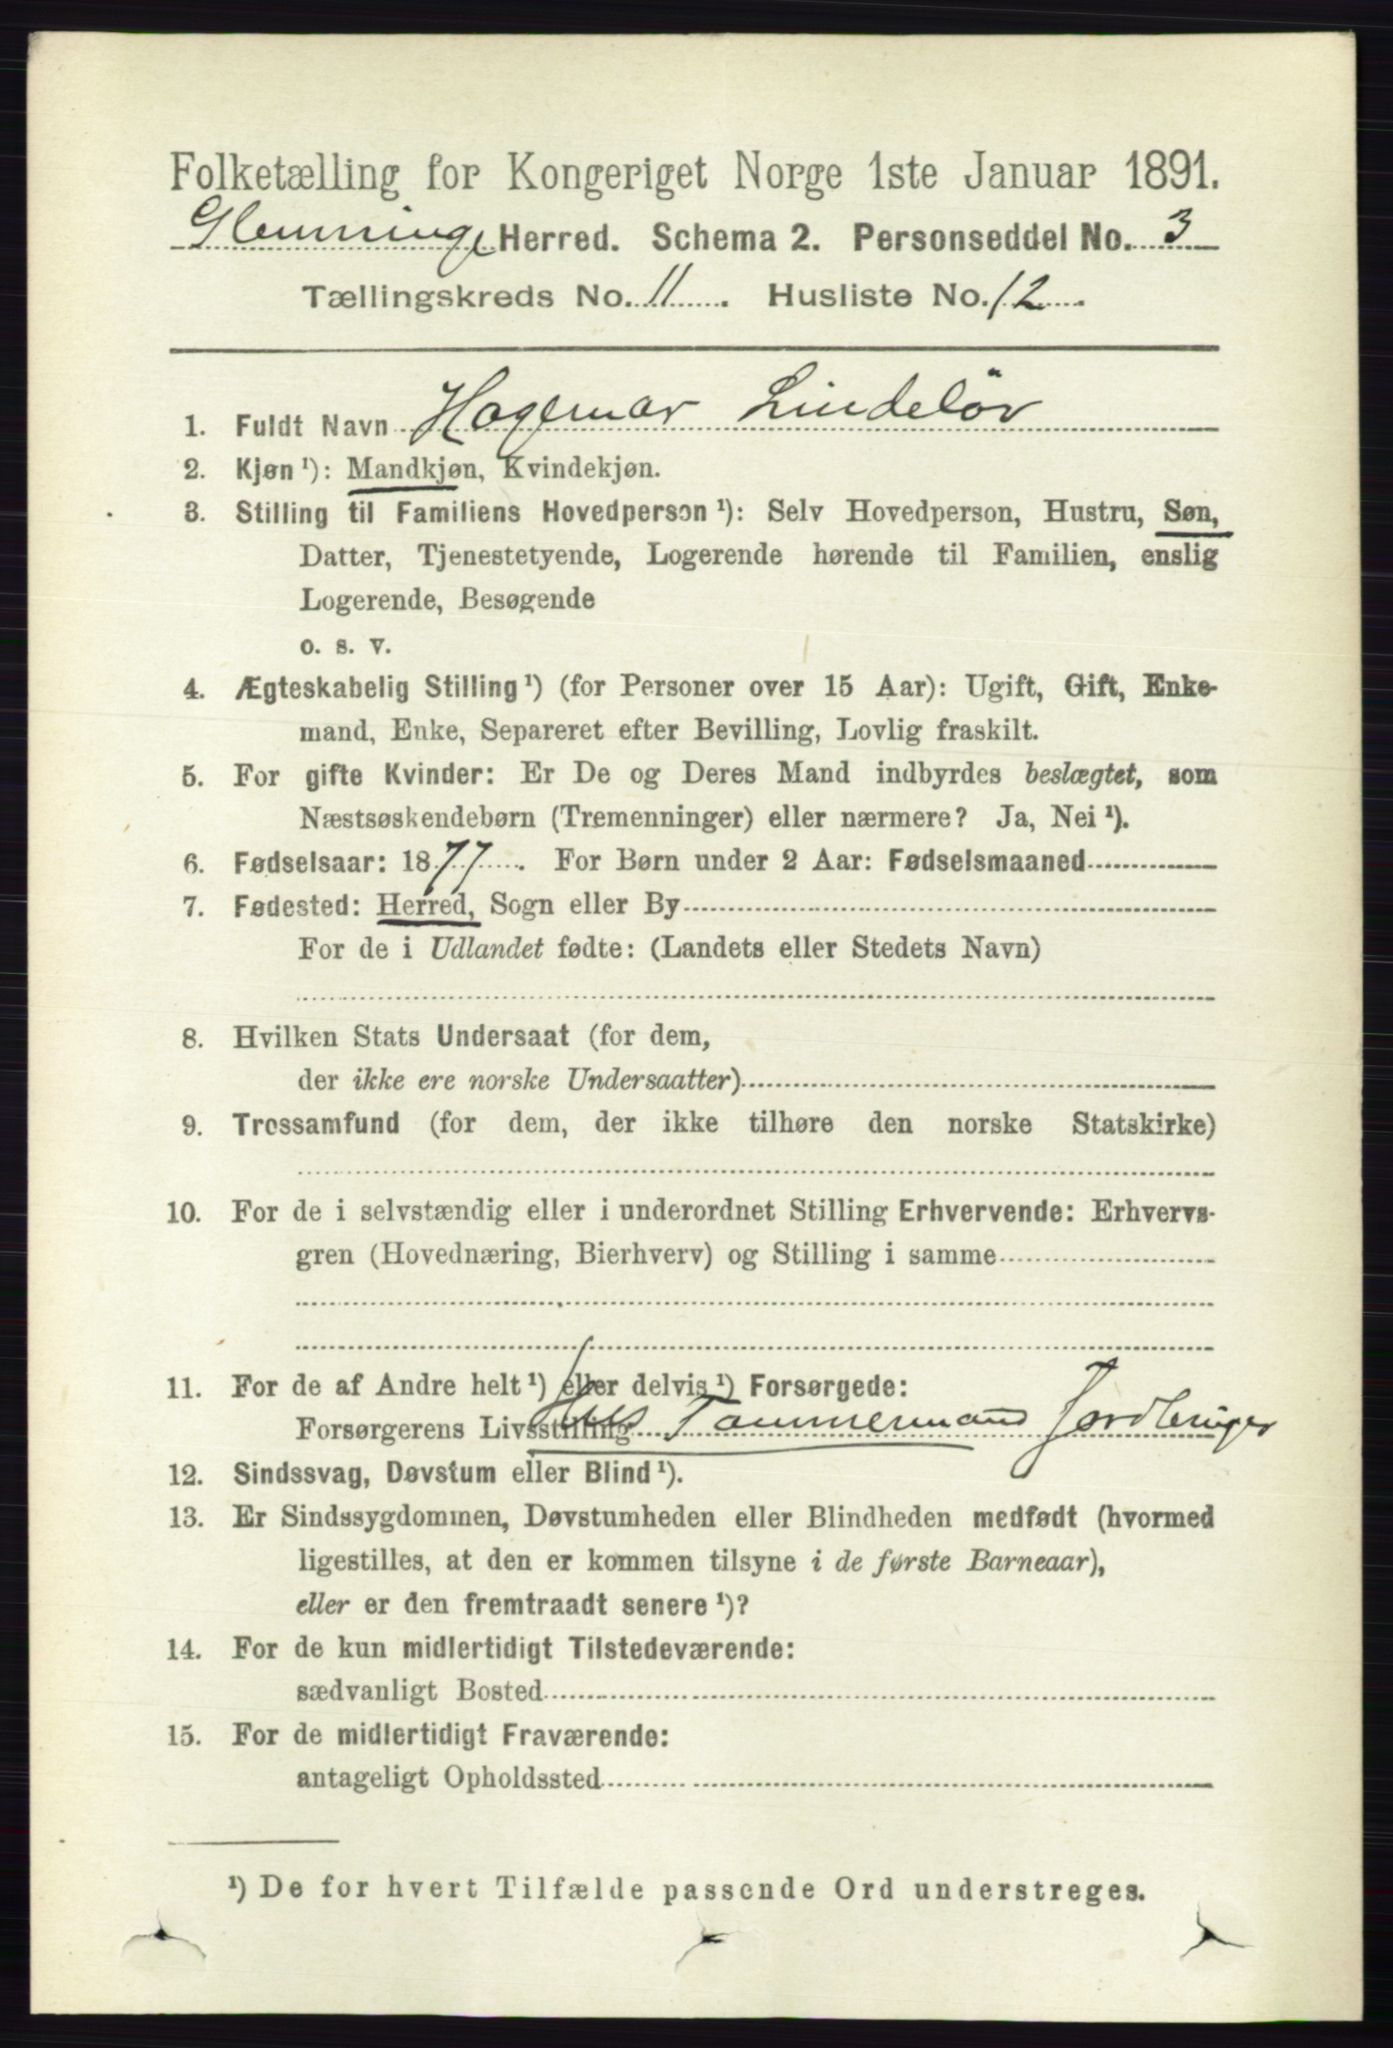 Folketælling for Kongeriget Norge 1ste Januar 1891.
Glemminge Herred. Schema 2. Personseddel No. 3
Tællingskreds No. 11. Husliste No. 12.
1. Fuldt Navn Hagemar Lindelöv
2. Kjøn¹): Mandkjøn, Kvindekjøn.
3. Stilling til Familiens Hovedperson¹): Selv Hovedperson, Hustru, Søn,
Datter, Tjenestetyende, Logerende hørende til Familien, enslig
Logerende, Besøgende
o. s. v.
4. Ægteskabelig Stilling¹) (for Personer over 15 Aar): Ugift, Gift, Enke-
mand, Enke, Separeret efter Bevilling, Lovlig fraskilt.
5. For gifte Kvinder: Er De og Deres Mand indbyrdes beslægtet, som
Næstsøskendebørn (Tremenninger) eller nærmere? Ja, Nei¹).
6. Fødselsaar: 1877. For Børn under 2 Aar: Fødselsmaaned
7. Fødested: Herred, Sogn eller By
For de i Udlandet fødte: (Landets eller Stedets Navn)
8. Hvilken Stats Undersaat (for dem,
der ikke ere norske Undersaatter)
9. Trossamfund (for dem, der ikke tilhøre den norske Statskirke)
10. For de i selvstændig eller i underordnet Stilling Erhvervende: Erhvervs-
gren (Hovednæring, Bierhverv) og Stilling i samme
11. For de af Andre helt¹) eller delvis¹) Forsørgede:
Forsørgerens Livsstilling Hus Tømmermand Jordbruger
12. Sindssvag, Døvstum eller Blind¹).
13. Er Sindssygdommen, Døvstumheden eller Blindheden medfødt (hvormed
ligestilles, at den er kommen tilsyne i de første Barneaar),
eller er den fremtraadt senere¹)?
14. For de kun midlertidigt Tilstedeværende:
sædvanligt Bosted
15. For de midlertidigt Fraværende:
antageligt Opholdssted
¹) De for hvert Tilfælde passende Ord understreges.